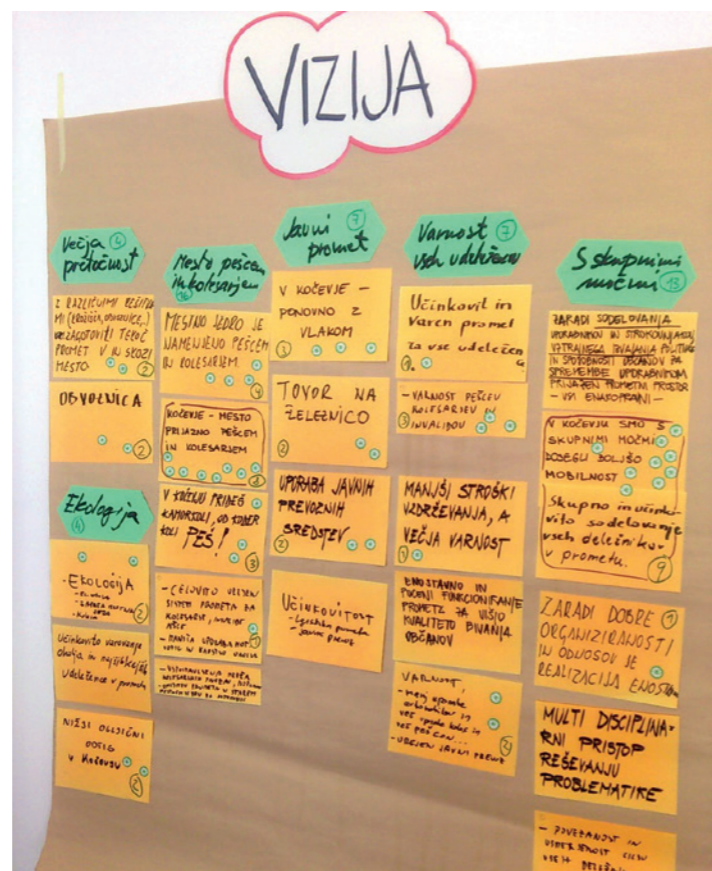 VIZIJA
Večja
pretočnost
4
Z RAZLIČNIMI REŠITVA
MI (KROŽIŠČA, OBVOZNICE,..)
ZAGOTOVITI TEKOČ
PROMET V IN SKOZI
MESTO.
2
OBVOZNICA
2
Ekologija
4
- EKOLOGIJA
2
Učinkovito varovanje
okolja in najšibkejših
udeležence v prometu
NIŽJI OGLJIČNI
ODTIS
V KOČEVJU
2
Mesto pešcem
in kolesarjem
MESTNO JEDRO JE
NAMENJENO PEŠCEM
IN KOLESARJEM.
4
KOČEVJE - MESTO
PRIJAZNO PEŠCEM
IN KOLESARJEM
V KOČEVJU PRIDEŠ
KAMORKOLI, OD KODER
KOLI PEŠ!
3
- CELOVITO UREJEN
SISTEM PROMETA ZA
KOLESARJE,
PEŠCE
Javni
promet
7
V KOČEVJE -
PONOVNO Z
VLAKOM
3
TOVOR NA
ŽELEZNICO
2
UPORABA JAVNIH
PREVOZNIH
SREDSTEV
2
UČINKOVITOST
Varnost
vseh udeležencev
7
Učinkovit in
varen promet
za vse udeležen
- VARNOST PEŠCEV
KOLESARJEV IN
INVALIDOV
3
MANJŠI STROŠKI
VZDRŽEVANJA, A
VEČJA VARNOST
1
ENOSTAVNO IN
POCENI FUNKCIONIRANJE
PROMETA ZA VIŠJO
KVALITETO BIVANJA
OBČANOV
VARNOST,
- manj uporabe
avtomobilov in
več koles in
več pešcev...
- UREJEN JAVNI PREVOZ
2
S skupnimi
močmi
13
ZARADI SODELOVANJA
UPORABNIKOV IN STROKOVNJAKOV,
VZTRAJNEGA IZVAJANJA POLITIKE
IN SPOSOBNOSTI OBČANOV ZA
SPREMEMBE UPORABNIKOM
PRIJAZEN PROMETNI PROSTOR
- VSI ENAKOPRAVNI -
V KOČEVJU SMO S
SKUPNIMI MOČMI
DOSEGLI BOLJŠO
MOBILNOST
Skupno in učinko-
vito sodelovanje
vseh deležnikov
v prometu.
9
ZARADI DOBRE
ORGANIZIRANOSTI
IN ODNOSOV JE
REALIZACIJA ENOSTAVNA
1
MULTI DISCIPLINA-
RNI PRISTOP
REŠEVANJU
PROBLEMATIKE
- POVEZANOST IN
USMERJENOST CILJEV
VSEH DELEŽNIKOV